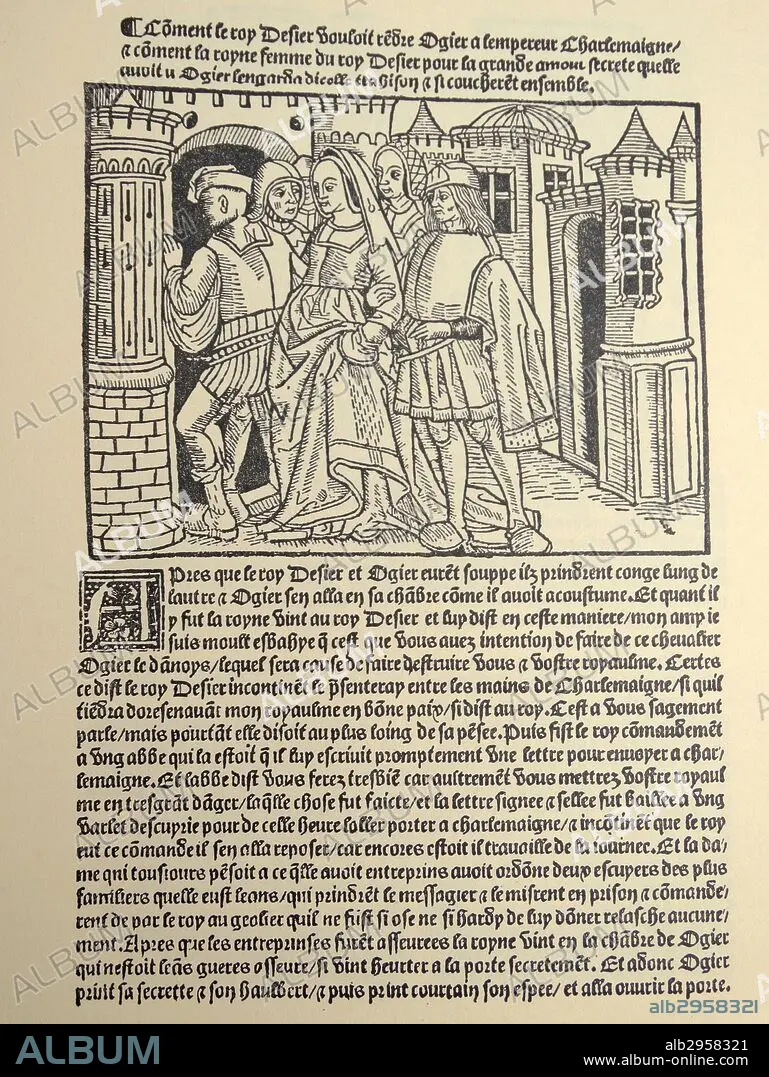 ¶Cõment le roy Desier vouloit rẽdre Ogier a lempereur Charlemaigne/
⁊ cõment la royne femme du roy Desier pour la grande amour secrete quelle
auoit a Ogier lengarda dicelle trahison ⁊ si coucherẽt ensemble.
APres que le roy Desier et Ogier eurẽt souppe ilz prindrent conge lung de
lautre ⁊ Ogier sen alla en sa chãbre cõme il auoit acoustume. Et quant il
y fut la royne vint au roy Desier et luy dist en ceste maniere/mon amy ie
suis moult esbahye q̃ cest que vous auez intention de faire de ce cheualier
Ogier le dãnoys/lequel sera cause de faire destruire vous ⁊ vostre royaulme. Certes
ce dist le roy Desier incontinẽt le p̃senteray entre les mains de Charlemaigne/si quil
tiẽdra doresenauãt mon royaulme en bõne paix/si dist au roy. Cest a vous sagement
parle/mais pourtãt elle disoit au plus loing de sa pẽsee. Puis fist le roy cõmandemẽt
a vng abbe qui la estoit q̃ il luy escriuit promptement vne lettre pour enuoyer a char/
lemaigne. Et labbe dist vous ferez tresbiẽ car aultremẽt vous mettrez vostre royaul
me en tresgrãt dãger/laq̃lle chose fut faicte/et la lettre signee ⁊ sellee fut baillee a vng
varlet descuyrie pour de celle heure laller porter a charlemaigne/⁊ incõtinẽt que le roy
eut ce cõmande il sen alla reposer/car encores estoit il trauaille de la iournee. Et la da/
me qui tousiours pẽsoit a ce q̃lle auoit entreprins auoit ordõne deux escuyers des plus
familiers quelle eust leans/qui prindrẽt le messagier ⁊ le misrent en prison ⁊ cõmande/
rent de par le roy au geolier quil ne fust si ose ne si hardy de luy dõner relasche aucune/
ment. Apres que les entreprinses furẽt asseurees la royne vint en la chãbre de Ogier
qui nestoit leãs gueres asseure/si vint heurter a la porte secretemẽt. Et adonc Ogier
print sa secrette ⁊ son haulbert/⁊ puis print courtain son espee/et alla ouurir la porte.
alb2958321
ALBUM
alb2958321
www.album-online.com